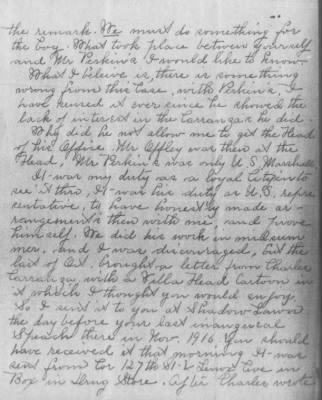 the remark. We must do something for
the boy. What took place between yourself
and Mr Perkins I would like to know.
What I beleive is, there is something
wrong from this Case, with Perkins, I
have keured it ever since he showed the
lack of interest in the Carranza he did.
Why did he not allow me to get the Head
of his Office. Mr Offley was then at the
Head, Mr Perkins was only U S Marshall
It was my duty as a loyal Citizen to
see it thro, It was his duty as U.S. repre
sentative, to have honestly made ar-
rangements then with me and prove
himself. We did his work in mid sum
mer, and I was discouraged, but the
last of Oct. brought a letter from Charles
Carranza with a Villa Head Cartoon in
it which I thought you would enjoy.
So I sent it to you at Shadow Lawn
the day before your last inaugural
Speach there in Nov. 1916. You should
have received it that morning It was
sent from Cor 127th St & Lenox Ave in
Box in Drug Store. After Charles wrote